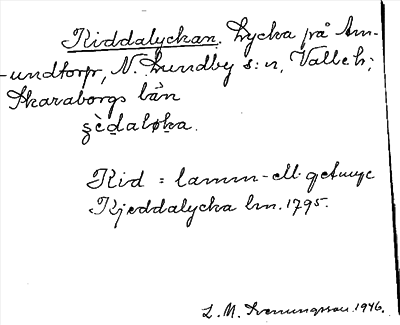 Kiddalyckan. Lycka på Am-
undtorp, N. Lundby s:n, Valle h;
Skaraborgs län
Kid = lamm- ell. getunge
Kjeddalycka lm. 1795.
L. M. Svenungsson. 1946.